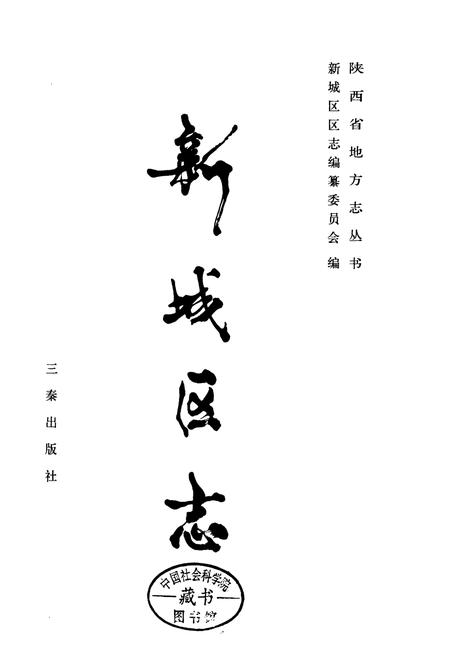 陕西省地方志丛书
新城区区志编纂委员会 编
新城区志
三秦出版社
中国社会科学院
藏书
图书馆